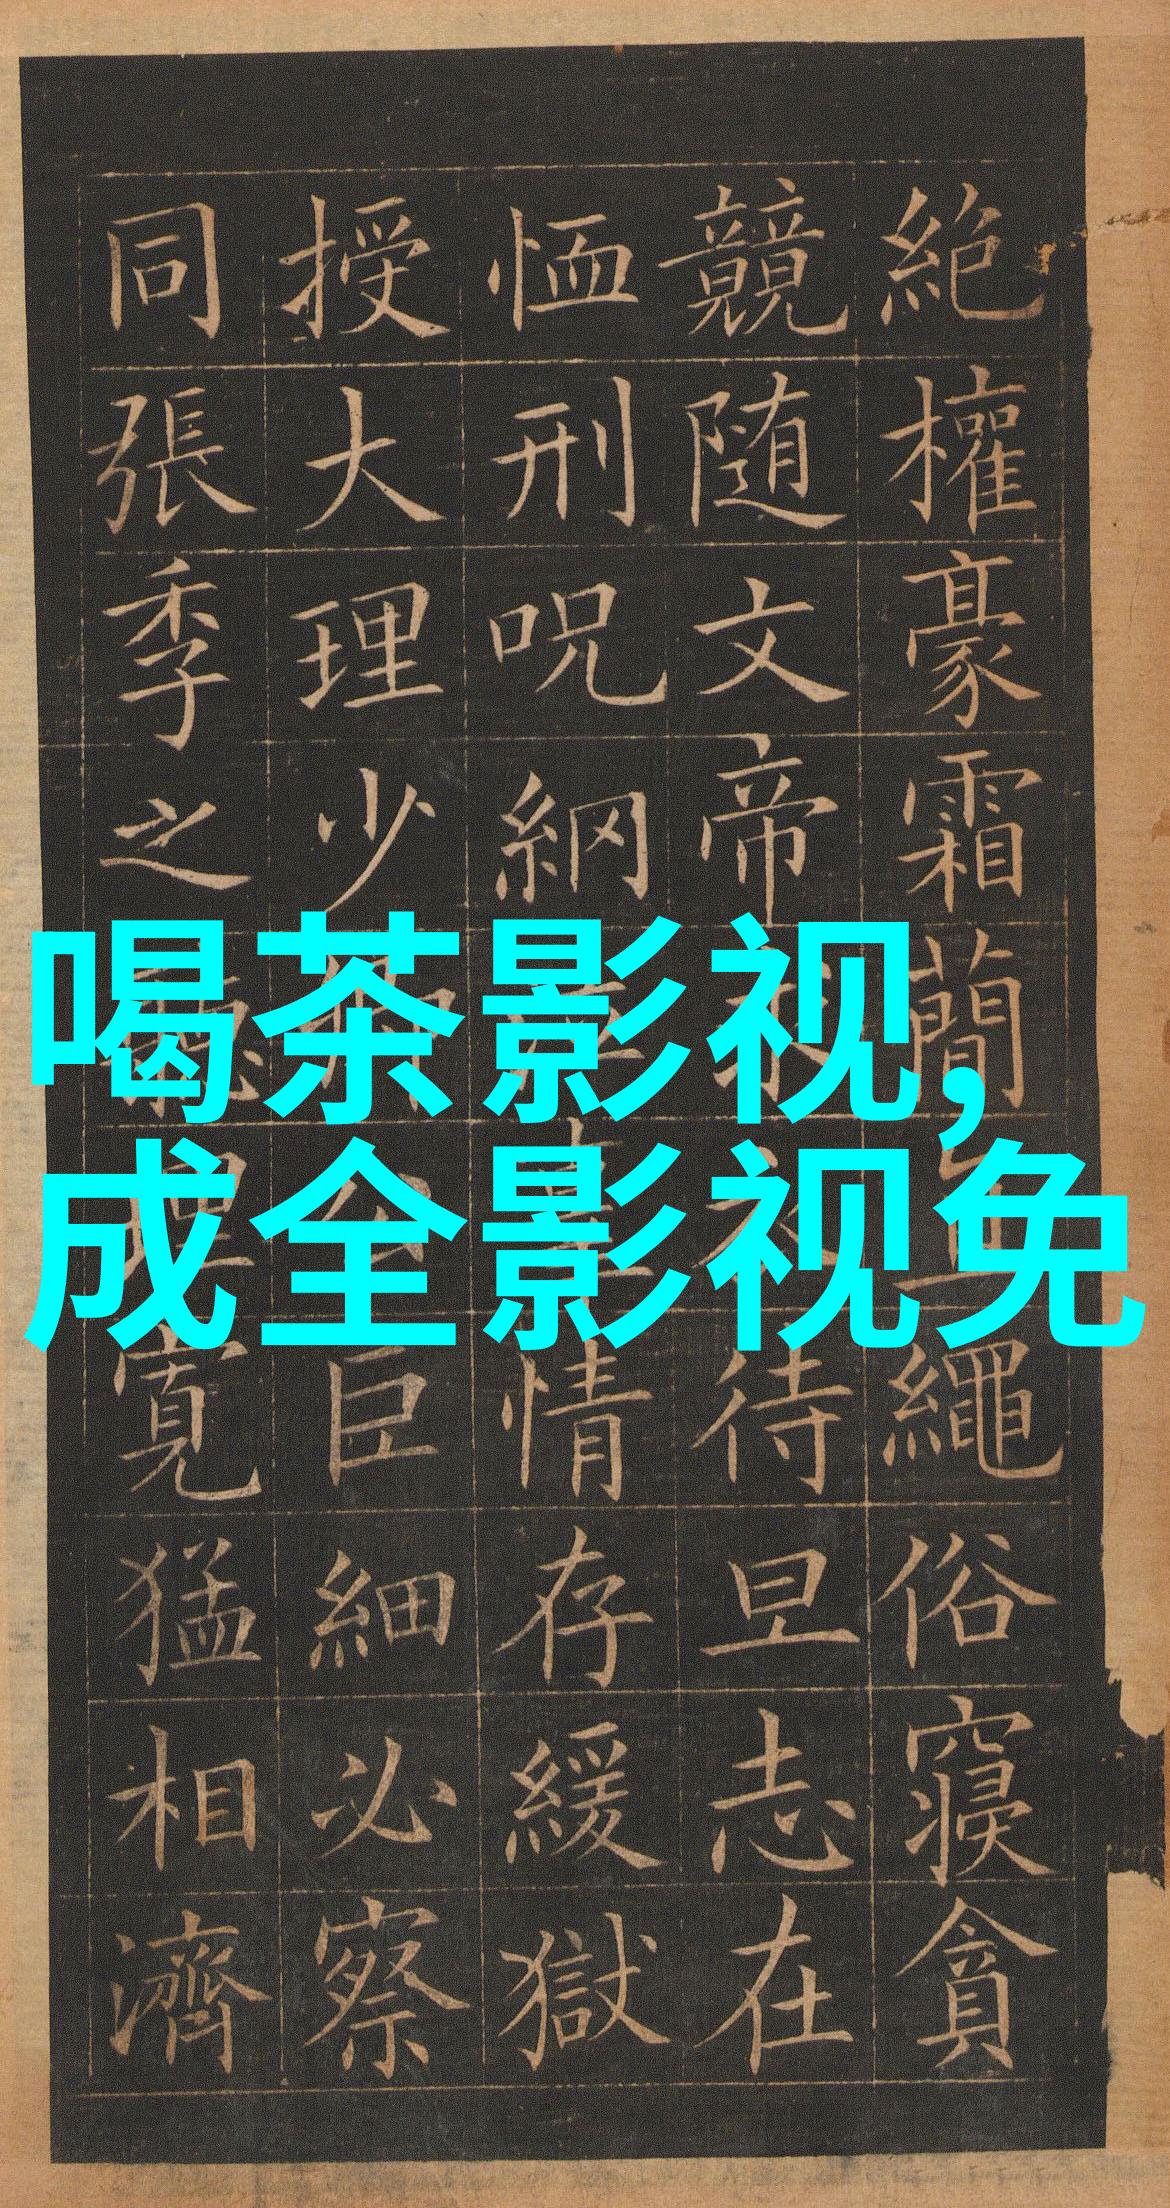 絶權豪霜簡繩俗寢貪
競随文帝求衣待旦志在
恤刑呪網情存緩獄
授大理少卿公巨細必察
同張季之聽理寬猛相濟
喝茶影视,
成全影视免